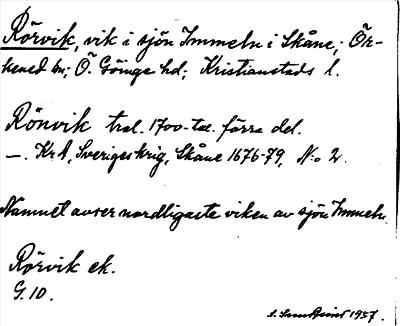 Rörvik, vik i sjön Immeln i Skåne; Ör-
keneds sn; Ö. Göinge hd; Kristianstads l.
Rönvik tral. 1700-tal. förra del.
—. KrA, Sverigeskrig, Skåne 1676-79, N:o 2.
Namnet avser nordligaste viken av sjön Immeln.
Rörvik ek.
G. 10.
1957.